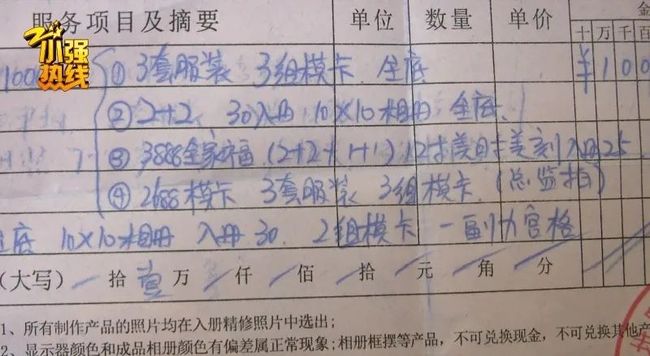 小强热线
服务项目及摘要 单位 数量 单价 金
十 万 千 百
① 3套服装 3组模卡 全底 ¥100
② 2+2 30入册 10×10相册 全底
③ 3888全家福 (2+2+1+1) 12寸 入册25
④ 2688模卡 3套服装 3组模卡 (总监拍)
底 10×10相册 入册30 2组模卡 一副九宫格
(大写) 拾 壹 万 仟 佰 拾 元 角 分
1、所有制作产品的照片均在入册精修照片中选出;
2、显示器颜色和成品相册颜色有偏差属正常现象;相册框摆等产品,不可兑换现金,不可兑换其他产